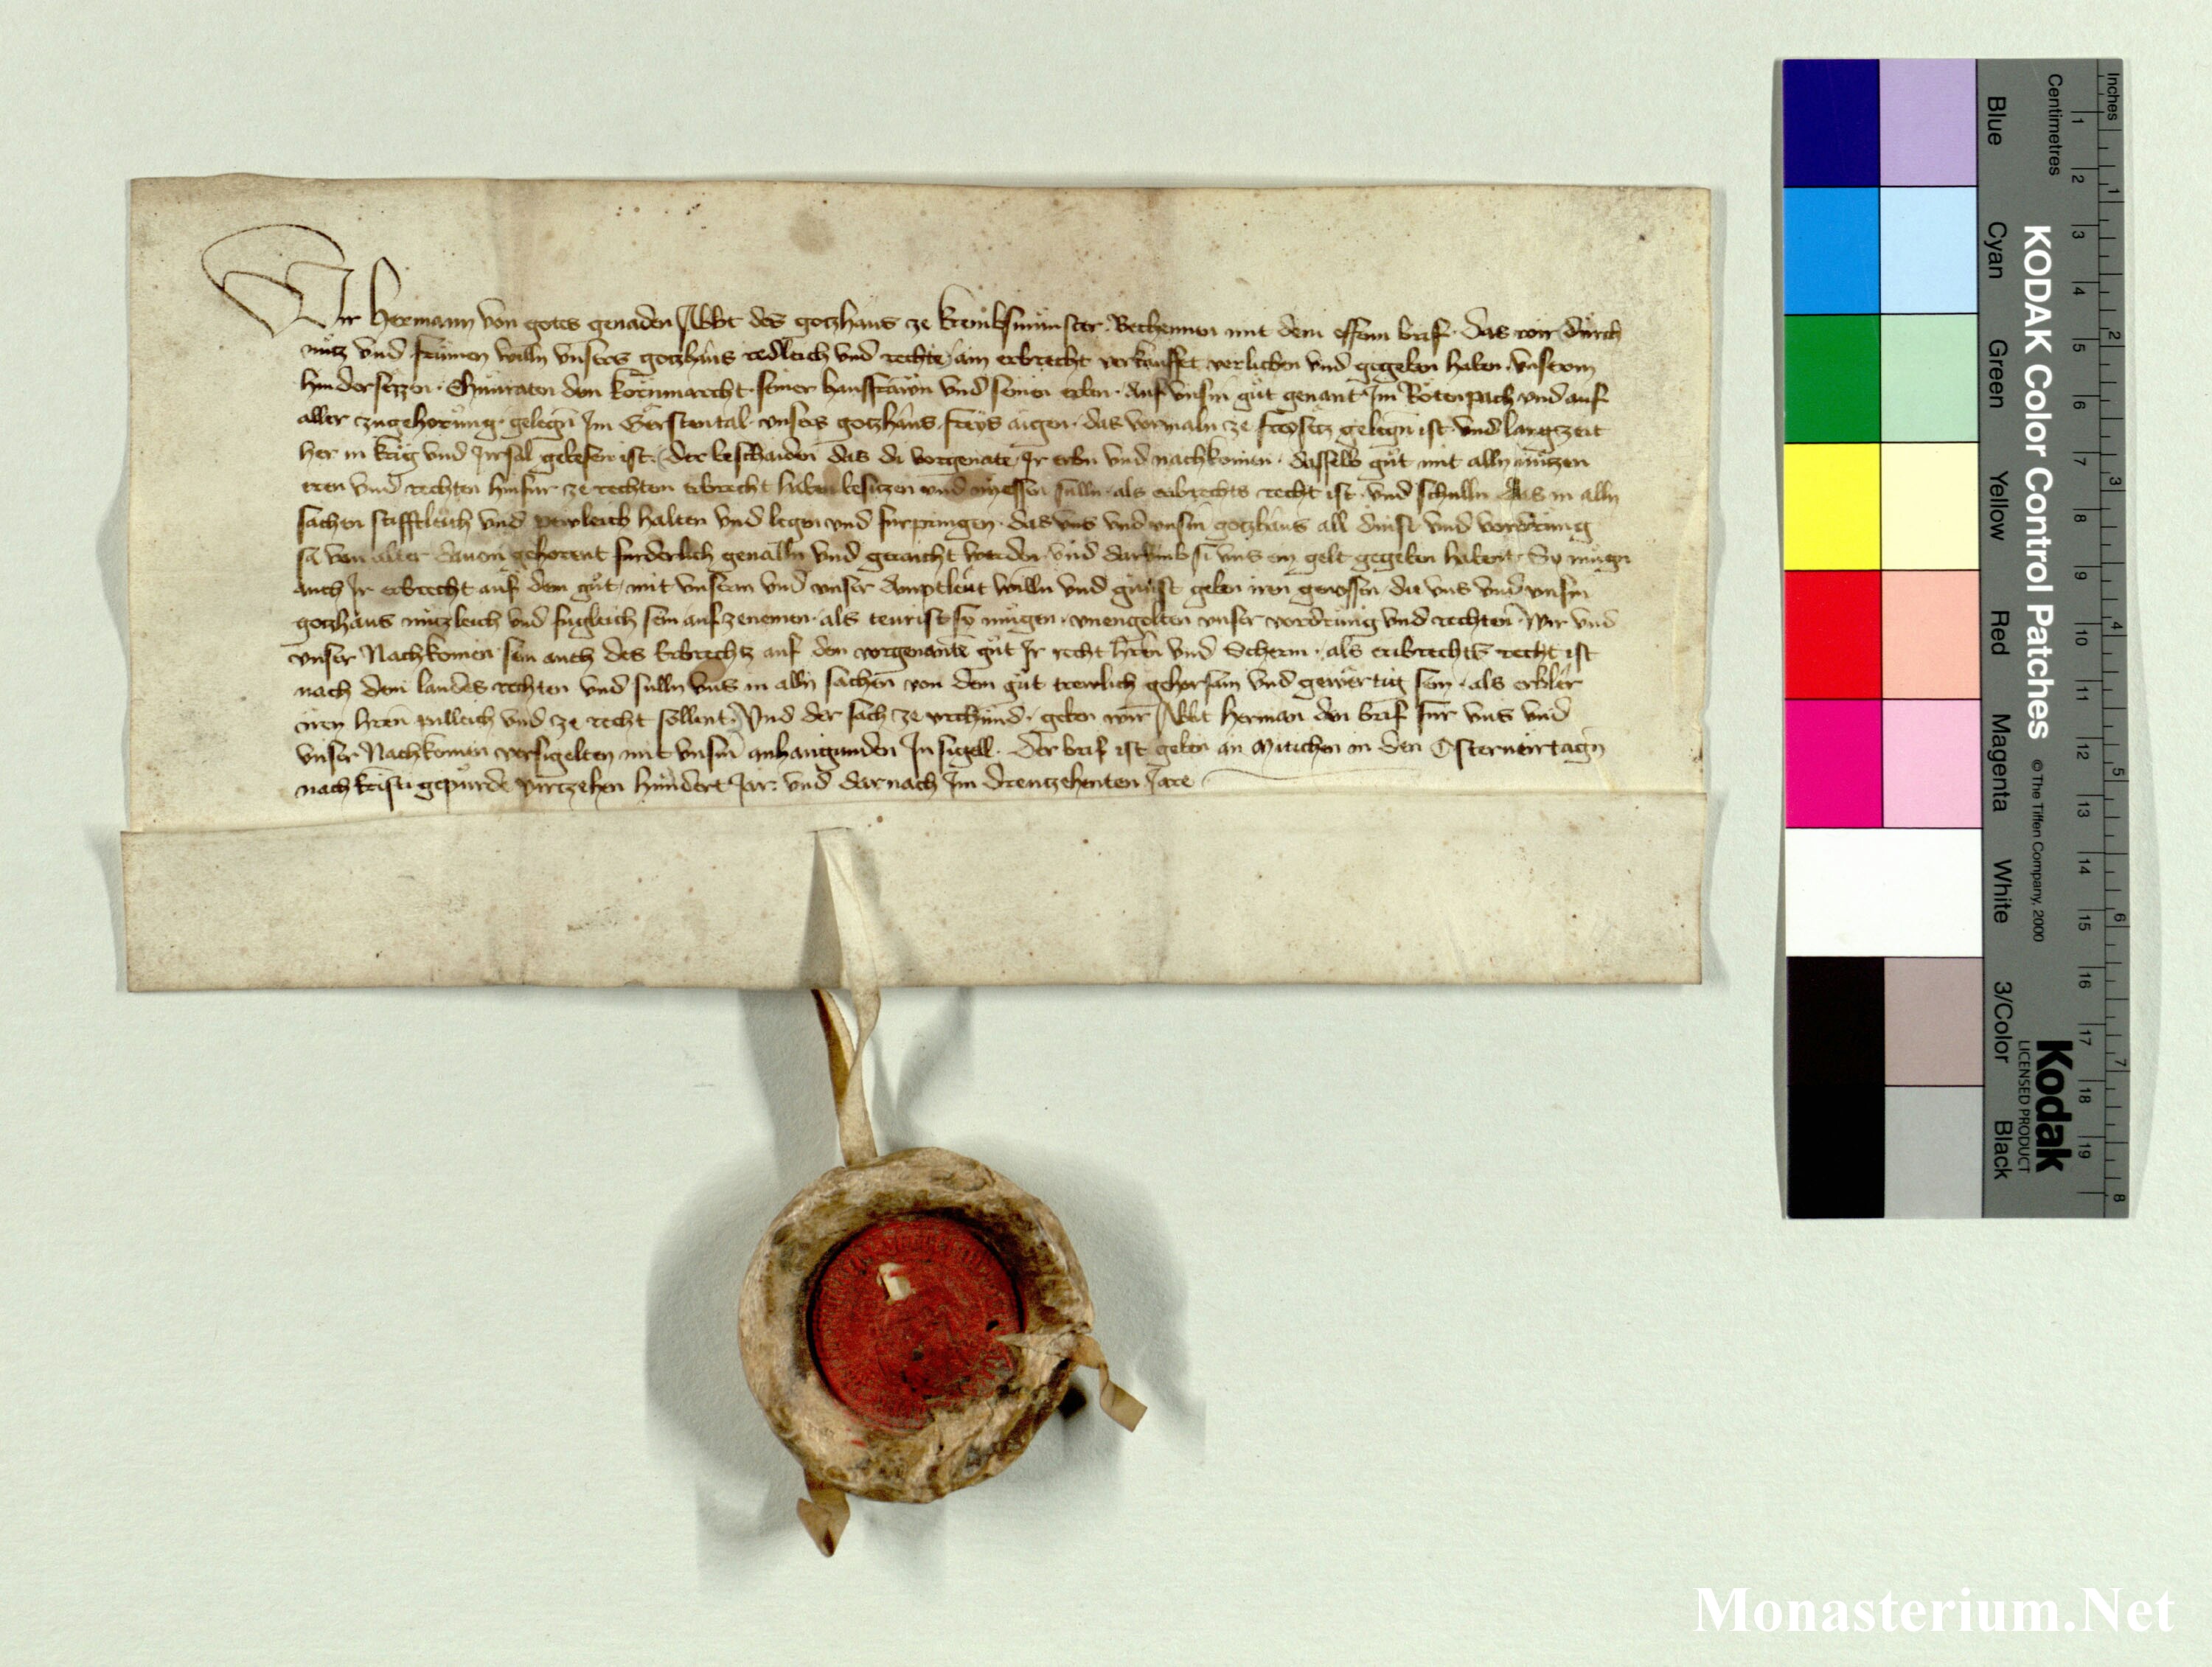 Wir Hermann von gotes genaden Abbt des gotzhaus ze Krembsmünster Bechennen mit dem offenn brif das wir durch
nutz vnd frumen willn vnsers gotzhaus redleich vnd rechte ain erbrecht verkauffet verlichen vnd gegeben haben vnserm
hindersezzen Chunraten den Kornmarcht seiner hausfrawn vnd seinen erben auf vnsm gut genant Im Rötenpach vnd auf
aller zugehorung gelegn Im Gerstental vnsers gotzhaus freys aigen das vormaln ze freysetz gelegn ist vnd langzeit
her in krig vnd Irsal gebesen ist Der beschaiden das di vorgenante Ir erbn vnd nachkomen dasselb gut mit alln nützen
eren vnd rechten hinfur ze rechten erbrecht haben besiczen vnd niessen sulln als erbrechts recht ist vnd schulln das in alln
sachen stifftleich vnd pewleich halten vnd legen vnd furpringen das vns vnd vnsm gotzhaus all dinst vnd vordrung
di von alter dauon gehorent furderlich geualln vnd geraicht werden vnd darumb si vns ein gelt gegeben habent So mügn
auch Ir erbrecht auf dem gut mit vnserm vnd vnser Amptleut willn vnd gunst geben iren genossen die vns vnd vnsm
gotzhaus nutzleich vnd fugleich sein aufzenemen als teurist sy mügen vnengolten vnser vordrung vnd rechten Wir vnd
vnser Nachkomen sein auch des Erbrechtz auf dem vorgenante gut Ir recht hern vnd Scherm als eribrechts recht ist
nach dem landes rechten vnd sulln vns in alln sachen von dem gut trewlich gehorsam vnd gewertig sein als erbler
iren hren pilleich vnd ze recht sollent Vnd der sach ze vrchund geben wir Abbt Herman den brif fur vns vnd
vnser Nachkomen versigelten mit vnsm anhangunden Insigell Der brif ist geben an Mitichen in den Osterueirtagn
nach kristi gepurde virtzehen hundert Jar vnd darnach Im dreutzehenten Jare
KODAK Color Control Patches © The Tiffen Company, 2000
Kodak
LICENSED PRODUCT
Inches
1 2 3 4 5 6 7 8
Centimetres
1 2 3 4 5 6 7 8 9 10 11 12 13 14 15 16 17 18 19
Blue Cyan Green Yellow Red Magenta White 3/Color Black
Monasterium.Net